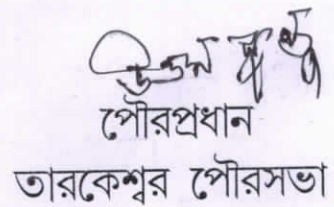 উত্তম কুণ্ডু
পৌরপ্রধান
তারকেশ্বর পৌরসভা